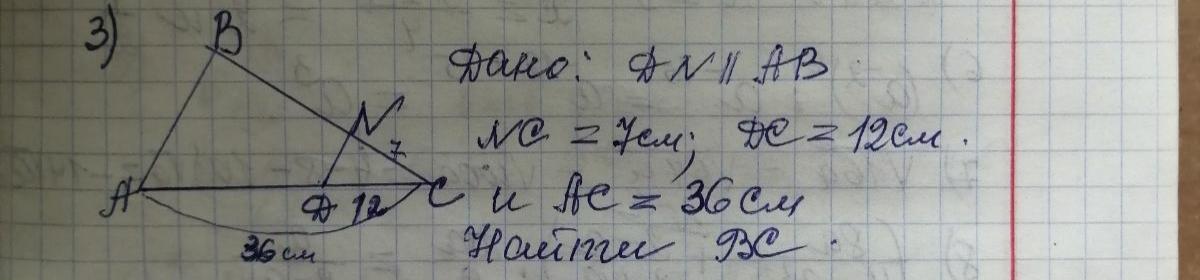 3)
B
Дано: DN || AB
N
NC = 7см; DC = 12см.
7
A D 12 C
и AC = 36 см
36 см
Найти BC.